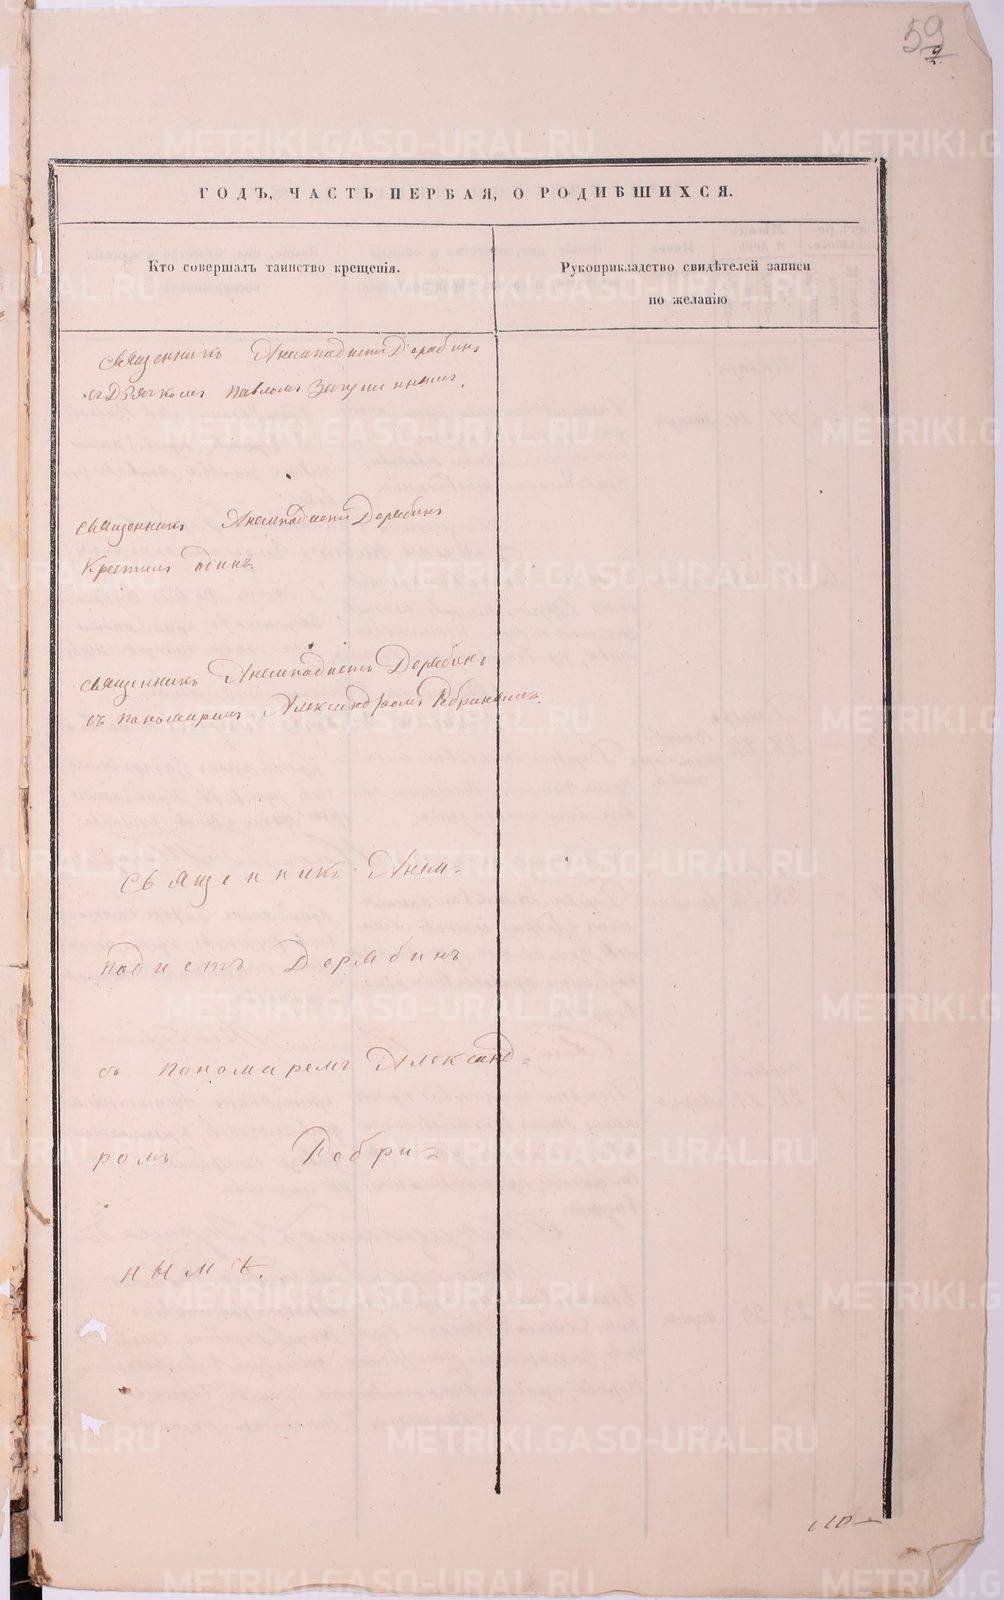 59
ГОДЪ, ЧАСТЬ ПЕРВАЯ, О РОДИВШИХСЯ.
Кто совершалъ таинство крещенія.
Рукоприкладство свидѣтелей записи
по желанію
Священникъ Анемподистъ Дерябинъ
съ Дьячкомъ Павломъ
Священникъ Анемподистъ Дерябинъ
Крестилъ одинъ.
Священникъ Анемподистъ Дерябинъ
съ пономаремъ Александромъ Ребринымъ.
Священникъ Анем-
подистъ Дерябинъ
съ пономаремъ Александ-
ромъ Ребри-
нымъ.
METRIKI.GASO-URAL.RU